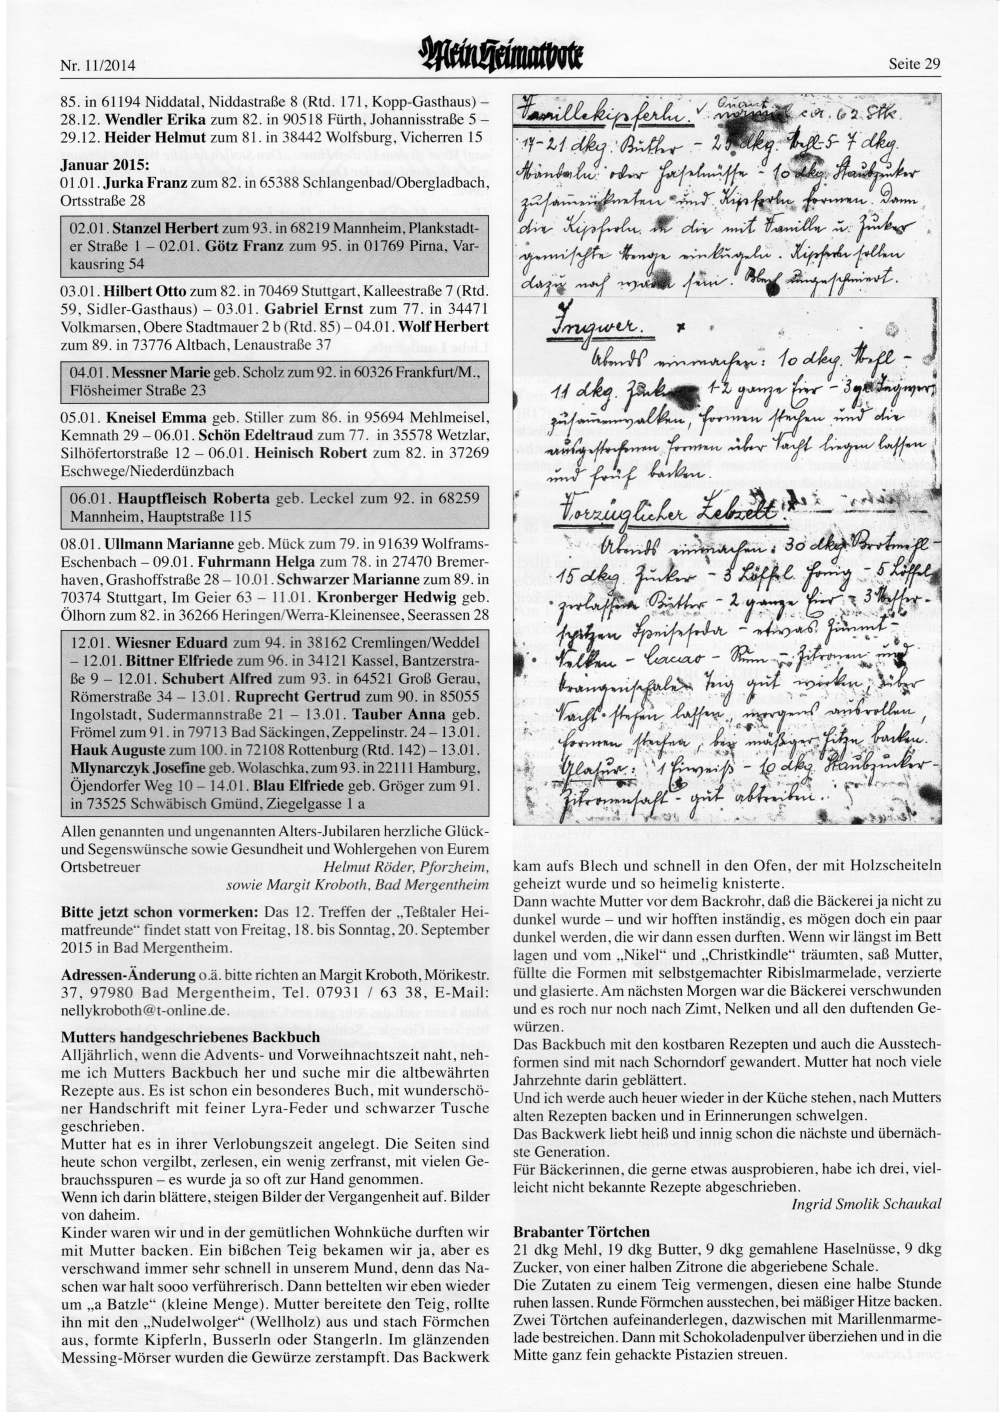 Nr. 11/2014
Mein Heimatbote
Seite 29
85. in 61194 Niddatal, Niddastraße 8 (Rtd. 171, Kopp-Gasthaus) –
28.12. Wendler Erika zum 82. in 90518 Fürth, Johannisstraße 5 –
29.12. Heider Helmut zum 81. in 38442 Wolfsburg, Vicherren 15
Januar 2015:
01.01. Jurka Franz zum 82. in 65388 Schlangenbad/Obergladbach,
Ortsstraße 28
02.01. Stanzel Herbert zum 93. in 68219 Mannheim, Plankstadt-
er Straße 1 – 02.01. Götz Franz zum 95. in 01769 Pirna, Var-
kausring 54
03.01. Hilbert Otto zum 82. in 70469 Stuttgart, Kalleestraße 7 (Rtd.
59, Sidler-Gasthaus) – 03.01. Gabriel Ernst zum 77. in 34471
Volkmarsen, Obere Stadtmauer 2 b (Rtd. 85) – 04.01. Wolf Herbert
zum 89. in 73776 Altbach, Lenaustraße 37
04.01. Messner Marie geb. Scholz zum 92. in 60326 Frankfurt/M.,
Flösheimer Straße 23
05.01. Kneisel Emma geb. Stiller zum 86. in 95694 Mehlmeisel,
Kemnath 29 – 06.01. Schön Edeltraud zum 77. in 35578 Wetzlar,
Silhöfertorstraße 12 – 06.01. Heinisch Robert zum 82. in 37269
Eschwege/Niederdünzbach
06.01. Hauptfleisch Roberta geb. Leckel zum 92. in 68259
Mannheim, Hauptstraße 115
08.01. Ullmann Marianne geb. Mück zum 79. in 91639 Wolframs-
Eschenbach – 09.01. Fuhrmann Helga zum 78. in 27470 Bremer-
haven, Grashoffstraße 28 – 10.01. Schwarzer Marianne zum 89. in
70374 Stuttgart, Im Geier 63 – 11.01. Kronberger Hedwig geb.
Ölhorn zum 82. in 36266 Heringen/Werra-Kleinensee, Seerassen 28
12.01. Wiesner Eduard zum 94. in 38162 Cremlingen/Weddel
– 12.01. Bittner Elfriede zum 96. in 34121 Kassel, Bantzerstra-
ße 9 – 12.01. Schubert Alfred zum 93. in 64521 Groß Gerau,
Römerstraße 34 – 13.01. Ruprecht Gertrud zum 90. in 85055
Ingolstadt, Sudermannstraße 21 – 13.01. Tauber Anna geb.
Frömel zum 91. in 79713 Bad Säckingen, Zeppelinstr. 24 – 13.01.
Hauk Auguste zum 100. in 72108 Rottenburg (Rtd. 142) – 13.01.
Mlynarczyk Josefine geb. Wolaschka, zum 93. in 22111 Hamburg,
Öjendorfer Weg 10 – 14.01. Blau Elfriede geb. Gröger zum 91.
in 73525 Schwäbisch Gmünd, Ziegelgasse 1 a
Allen genannten und ungenannten Alters-Jubilaren herzliche Glück-
und Segenswünsche sowie Gesundheit und Wohlergehen von Eurem
Ortsbetreuer Helmut Röder, Pforzheim,
sowie Margit Kroboth, Bad Mergentheim
Bitte jetzt schon vormerken: Das 12. Treffen der „Teßtaler Hei-
matfreunde“ findet statt von Freitag, 18. bis Sonntag, 20. September
2015 in Bad Mergentheim.
Adressen-Änderung o.ä. bitte richten an Margit Kroboth, Mörikestr.
37, 97980 Bad Mergentheim, Tel. 07931 / 63 38, E-Mail:
nellykroboth@t-online.de.
Mutters handgeschriebenes Backbuch
Alljährlich, wenn die Advents- und Vorweihnachtszeit naht, neh-
me ich Mutters Backbuch her und suche mir die altbewährten
Rezepte aus. Es ist schon ein besonderes Buch, mit wunderschö-
ner Handschrift mit feiner Lyra-Feder und schwarzer Tusche
geschrieben.
Mutter hat es in ihrer Verlobungszeit angelegt. Die Seiten sind
heute schon vergilbt, zerlesen, ein wenig zerfranst, mit vielen Ge-
brauchsspuren – es wurde ja so oft zur Hand genommen.
Wenn ich darin blättere, steigen Bilder der Vergangenheit auf. Bilder
von daheim.
Kinder waren wir und in der gemütlichen Wohnküche durften wir
mit Mutter backen. Ein bißchen Teig bekamen wir ja, aber es
verschwand immer sehr schnell in unserem Mund, denn das Na-
schen war halt sooo verführerisch. Dann bettelten wir eben wieder
um „a Batzle“ (kleine Menge). Mutter bereitete den Teig, rollte
ihn mit den „Nudelwolger“ (Wellholz) aus und stach Förmchen
aus, formte Kipferln, Busserln oder Stangerln. Im glänzenden
Messing-Mörser wurden die Gewürze zerstampft. Das Backwerk
Vanillekipferln. ca. 62 Stk.
17-21 dkg. Butter – 25 dkg. Mehl 5-7 dkg.
Mandeln oder Haselnüsse – 10 dkg. Staubzucker
zusammenkneten und Kipferln formen. Dann
die Kipferln in die mit Vanille u. Zucker
gemischte Menge einkugeln. Kipferln sollen
dazu noch warm sein. Blech eingeschmiert.
Ingwer. x
Abends einmachen: 10 dkg. Mehl –
11 dkg. Zucker 1-2 ganze Eier – 3 gr. Ingwer,
zusammenwalken, Formen stechen und die
ausgestochenen Formen über Nacht liegen lassen
und früh backen.
Vorzüglicher Lebzelt.
Abends einmachen: 30 dkg. Brotmehl –
15 dkg. Zucker – 3 Löffel Honig – 5 Löffel
zerlassene Butter – 2 ganze Eier – 3 Messer-
spitzen Speisesoda – etwas Zimmt –
Nelken – Cacao – Rum – Zitronen und
Orangenschale. Teig gut wirken, über
Nacht stehen lassen, morgens ausrollen,
Formen stechen, bei mäßiger Hitze backen.
Glasur: 1 Eiweiß – 10 dkg Staubzucker –
Zitronensaft – gut abtreiben.
kam aufs Blech und schnell in den Ofen, der mit Holzscheiteln
geheizt wurde und so heimelig knisterte.
Dann wachte Mutter vor dem Backrohr, daß die Bäckerei ja nicht zu
dunkel wurde – und wir hofften inständig, es mögen doch ein paar
dunkel werden, die wir dann essen durften. Wenn wir längst im Bett
lagen und vom „Nikel“ und „Christkindle“ träumten, saß Mutter,
füllte die Formen mit selbstgemachter Ribislmarmelade, verzierte
und glasierte. Am nächsten Morgen war die Bäckerei verschwunden
und es roch nur noch nach Zimt, Nelken und all den duftenden Ge-
würzen.
Das Backbuch mit den kostbaren Rezepten und auch die Ausstech-
formen sind mit nach Schorndorf gewandert. Mutter hat noch viele
Jahrzehnte darin geblättert.
Und ich werde auch heuer wieder in der Küche stehen, nach Mutters
alten Rezepten backen und in Erinnerungen schwelgen.
Das Backwerk liebt heiß und innig schon die nächste und übernäch-
ste Generation.
Für Bäckerinnen, die gerne etwas ausprobieren, habe ich drei, viel-
leicht nicht bekannte Rezepte abgeschrieben.
Ingrid Smolik Schaukal
Brabanter Törtchen
21 dkg Mehl, 19 dkg Butter, 9 dkg gemahlene Haselnüsse, 9 dkg
Zucker, von einer halben Zitrone die abgeriebene Schale.
Die Zutaten zu einem Teig vermengen, diesen eine halbe Stunde
ruhen lassen. Runde Förmchen ausstechen, bei mäßiger Hitze backen.
Zwei Törtchen aufeinanderlegen, dazwischen mit Marillenmarme-
lade bestreichen. Dann mit Schokoladenpulver überziehen und in die
Mitte ganz fein gehackte Pistazien streuen.